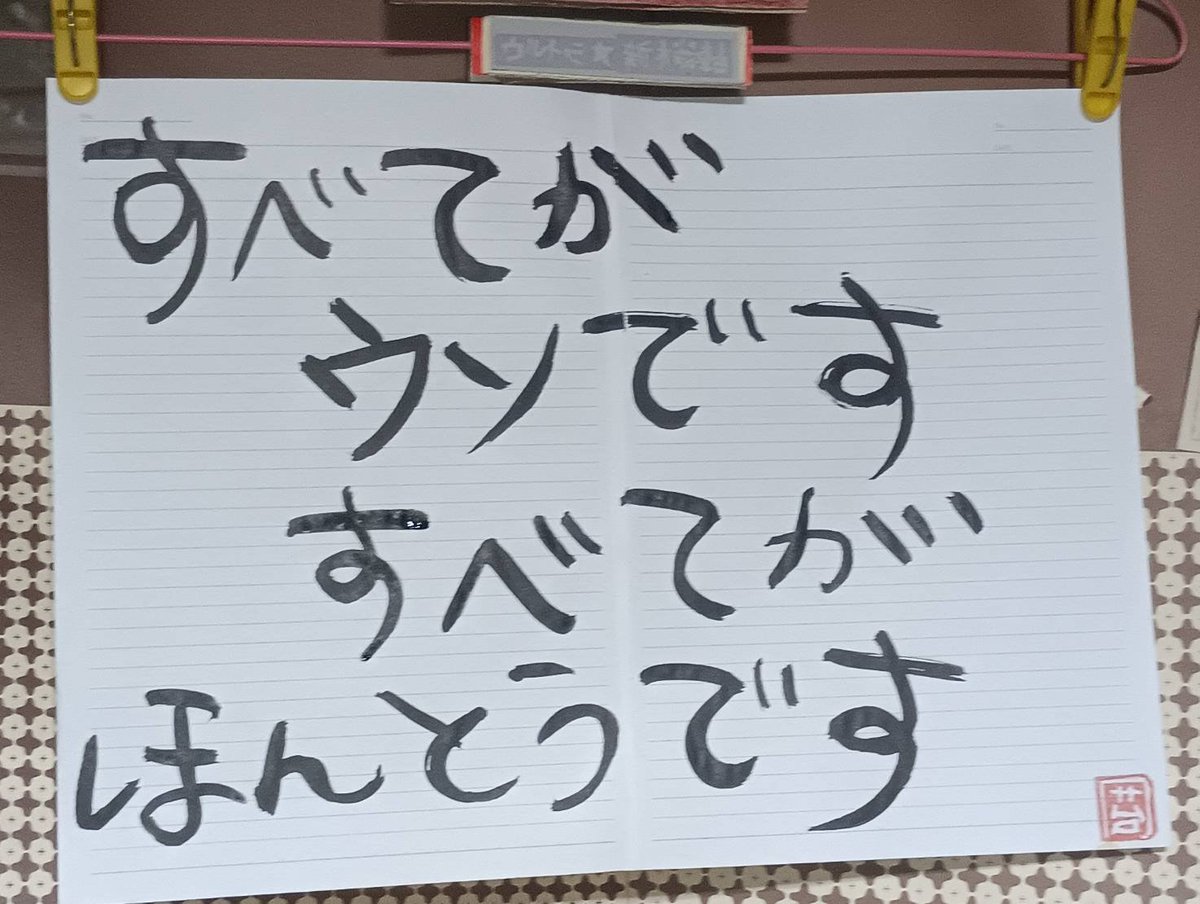 すべてが
ウソです
すべてが
ほんとうです